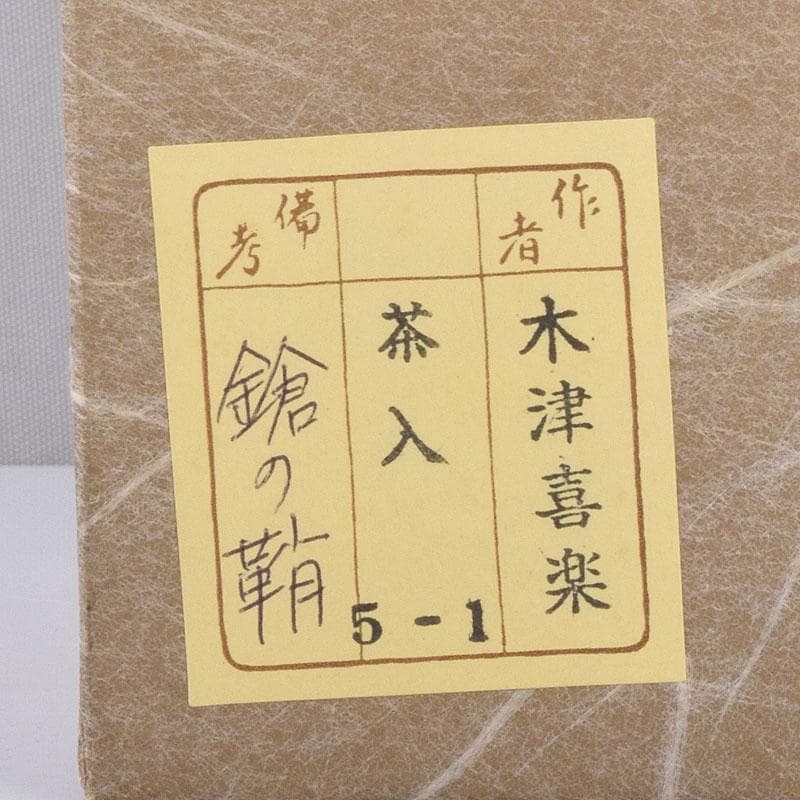 作者
木津喜楽
茶入
備考
鎗の鞘
5-1